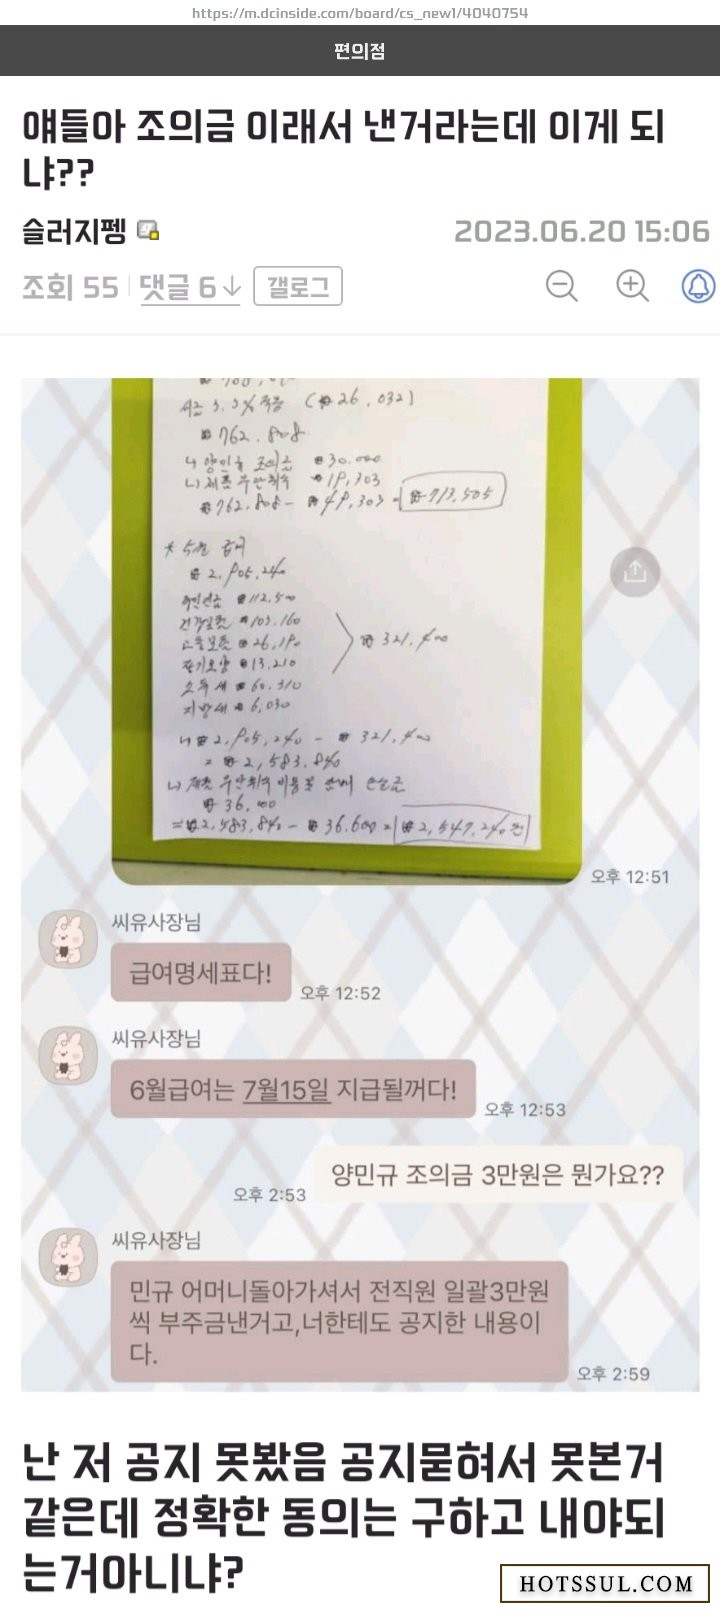 https://m.dcinside.com/board/cs_new1/4040754
편의점
얘들아 조의금 이래서 낸거라는데 이게 되
냐??
슬러지펭
2023.06.20 15:06
조회 55
댓글 6↓
갤로그
3.3%
(₩26,032)
₩762,808
조의금 ₩30,000
₩19,303
₩762,808 - ₩49,303 = ₩713,505
* 5월 급여
₩2,905,240
국민연금 ₩112,500
건강보험 ₩103,160
고용보험 ₩26,190
장기요양 ₩13,210
소득세 ₩60,310
지방세 ₩6,030
₩321,400
↳ ₩2,905,240 - ₩321,400
= ₩2,583,840
₩36,600
= ₩2,583,840 - ₩36,600 = ₩2,547,240원
오후 12:51
씨유사장님
급여명세표다!
오후 12:52
씨유사장님
6월급여는 7월15일 지급될꺼다!
오후 12:53
양민규 조의금 3만원은 뭔가요??
오후 2:53
씨유사장님
민규 어머니돌아가셔서 전직원 일괄3만원
씩 부주금낸거고,너한테도 공지한 내용이
다.
오후 2:59
난 저 공지 못봤음 공지묻혀서 못본거
같은데 정확한 동의는 구하고 내야되
는거아니냐?
HOTSSUL.COM